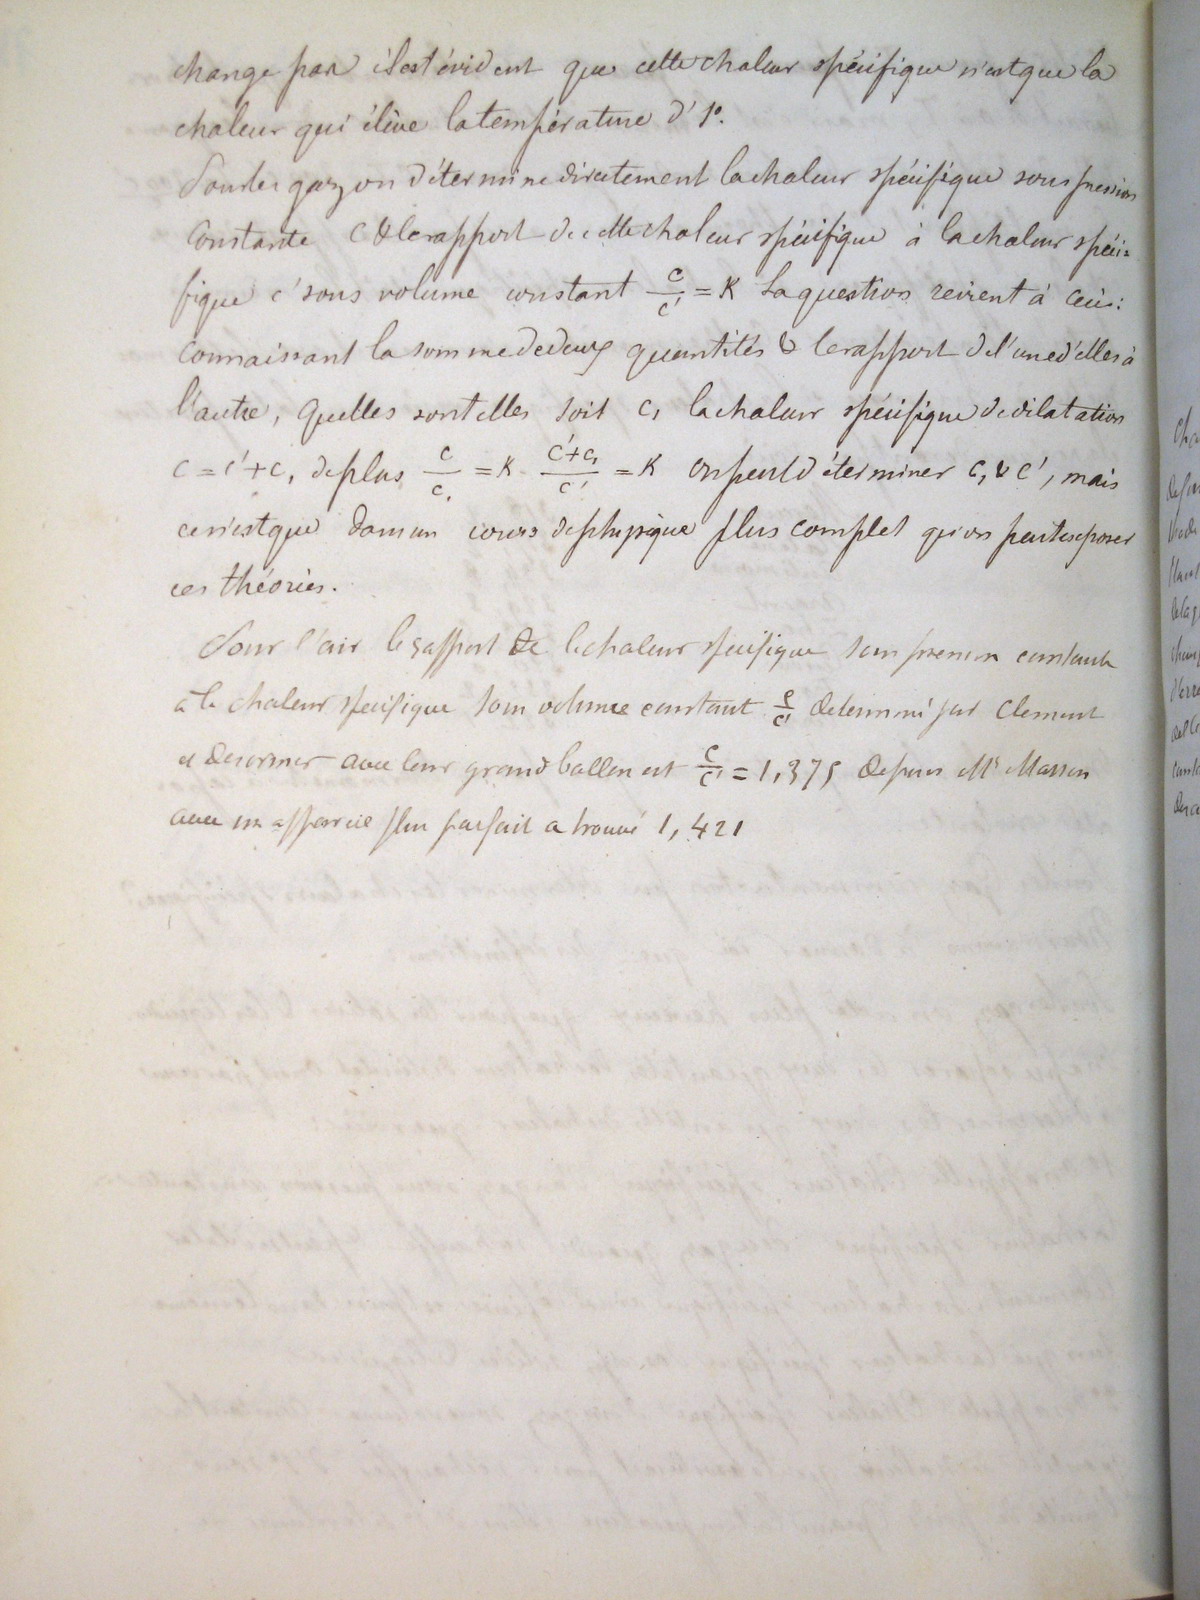 change pas il est évident que cette chaleur spécifique n'est que la
chaleur qui élève la température d'1°.
Pour les gaz on détermine directement la chaleur spécifique sous pression
constante C & le rapport de cette chaleur spécifique à la chaleur spéci=
fique c' sous volume constant c/c' = K La question revient à ceci:
Connaissant la somme de deux quantités & le rapport de l'une d'elles à
l'autre, quelles sont elles soit c, la chaleur spécifique de dilatation
c = c' + c, de plus c/c, = K c'+c,/c' = K on peut déterminer c, & c', mais
ce n'est que dans un cours de physique plus complet qu'on peut exposer
ces théories.
Pour l'air le rapport de la chaleur specifique sous pression constante
à la chaleur specifique sous volume constant c/c' determiné par Clement
et Desormes avec leur grand ballon est c/c' = 1,375 depuis Mr Masson
avec un appareil plus parfait a trouvé 1,421